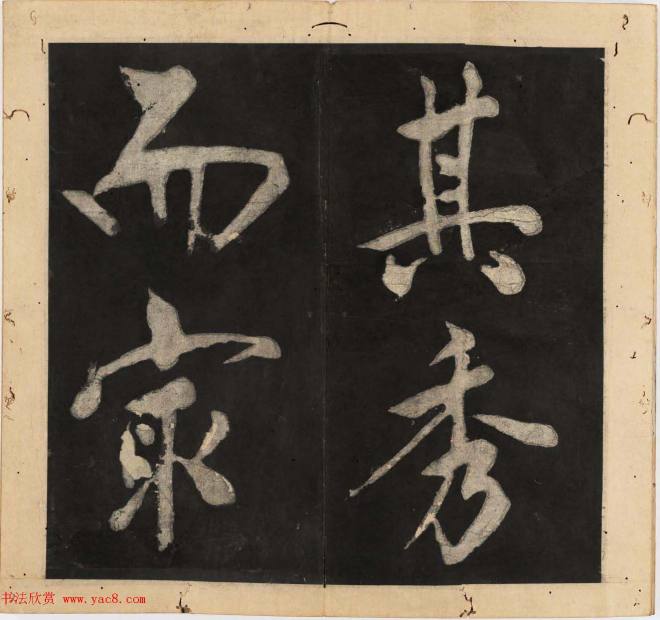 其秀
而
书法欣赏 www.yac8.com